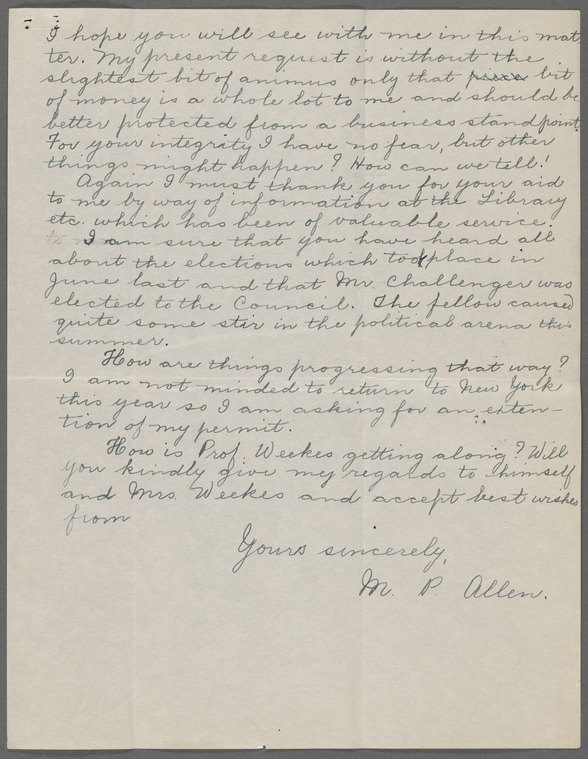 I hope you will see with me in this mat
ter. My present request is without the
slightest bit of animus only that bit
of money is a whole lot to me and should be
better protected from a business standpoint.
For your integrity I have no fear, but other
things might happen? How can we tell!
Again I must thank you for your aid
to me by way of information at the Library
etc. which has been of valuable service.
I am sure that you have heard all
about the elections which took place in
June last and that Mr. Challenger was
elected to the Council. The fellow caused
quite some stir in the political arena this
summer.
How are things progressing that way?
I am not minded to return to New York
this year so I am asking for an exten-
tion of my permit.
How is Prof. Weekes getting along? Will
you kindly give my regards to himself
and Mrs. Weekes and accept best wishes
from
Yours sincerely,
M. P. Allen.